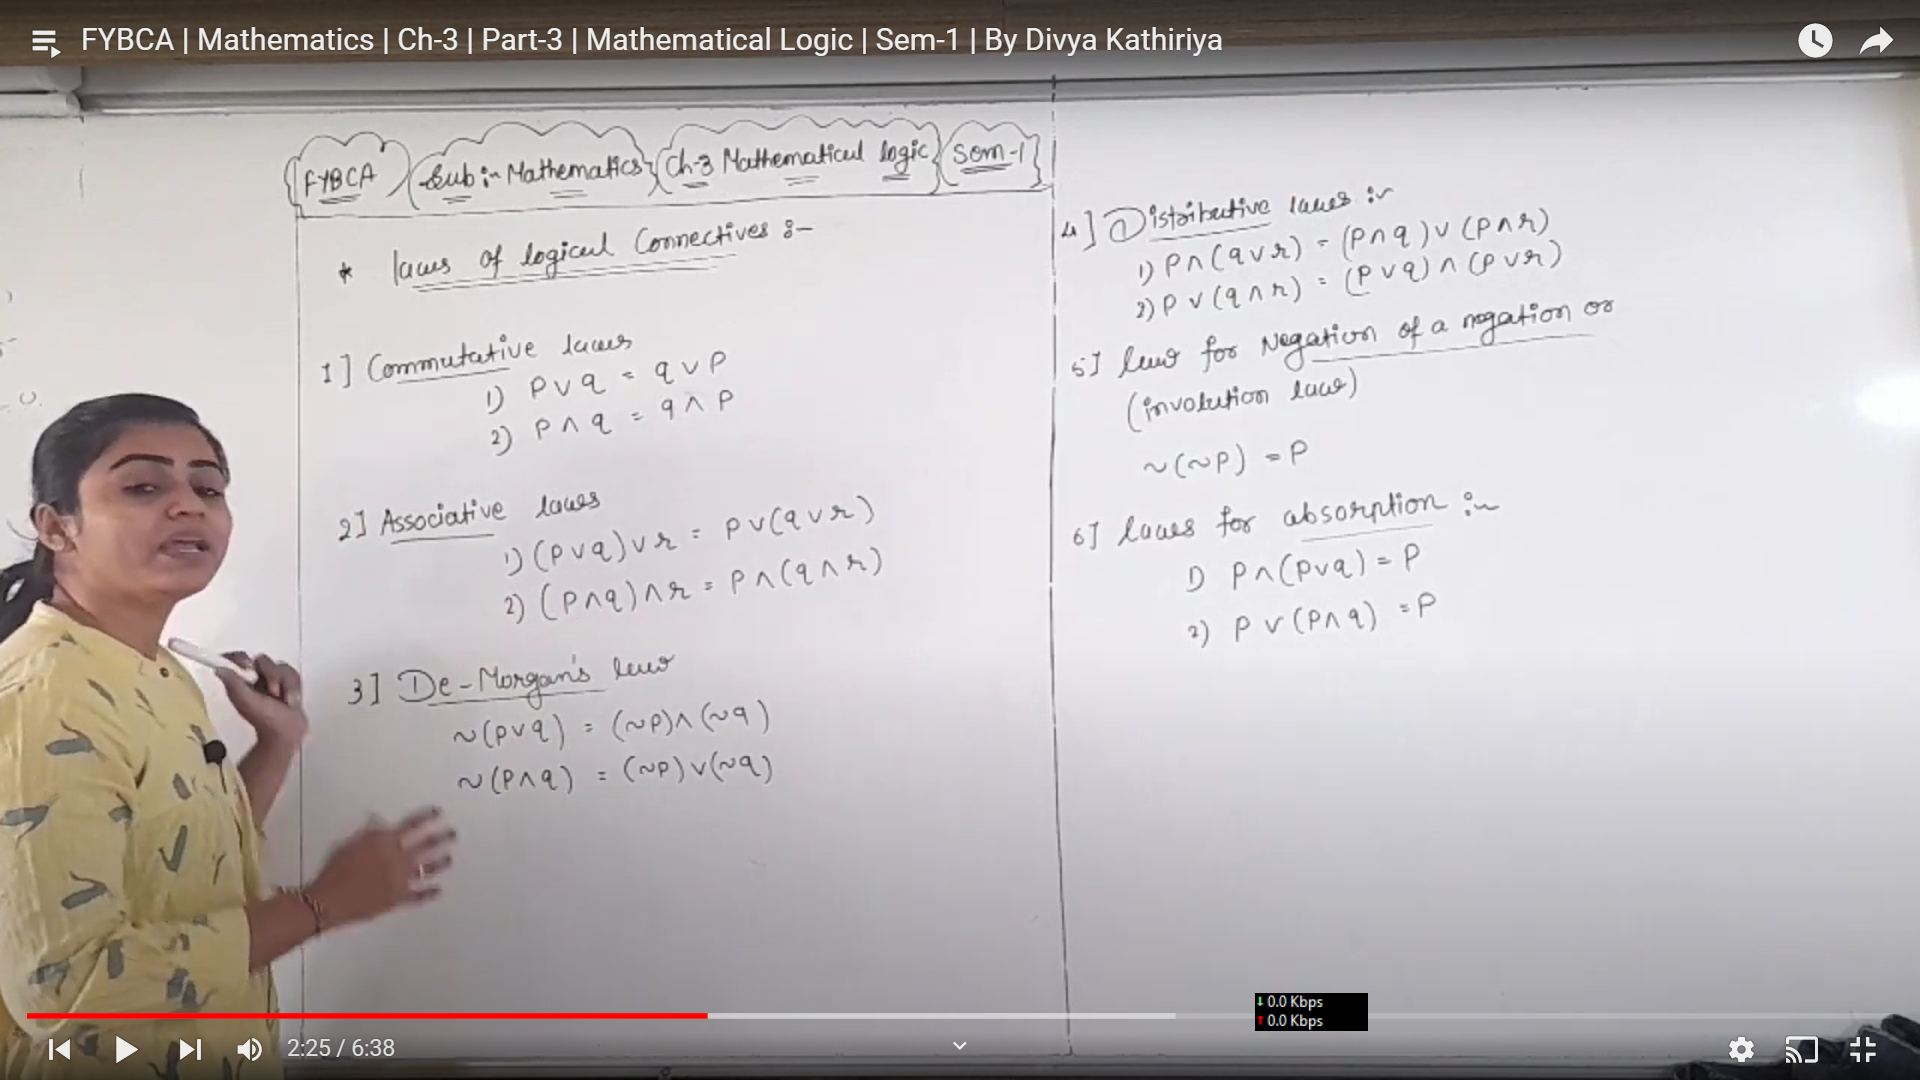 FYBCA | Mathematics | Ch-3 | Part-3 | Mathematical Logic | Sem-1 | By Divya Kathiriya
FYBCA Sub:- Mathematics Ch-3 Mathematical logic Sem-1
* laws of logical Connectives :-
1] Commutative laws
1) P∨q = q∨P
2) P∧q = q∧P
2] Associative laws
1) (P∨q)∨r = P∨(q∨r)
2) (P∧q)∧r = P∧(q∧r)
3] De-Morgan's law
~(P∨q) = (~P)∧(~q)
~(P∧q) = (~P)∨(~q)
4] Distributive laws :-
1) P∧(q∨r) = (P∧q)∨(P∧r)
2) P∨(q∧r) = (P∨q)∧(P∨r)
5] law for Negation of a negation or
(involution law)
~(~P) = P
6] laws for absorption :-
1) P∧(P∨q) = P
2) P∨(P∧q) = P
↓ 0.0 Kbps
↑ 0.0 Kbps
2:25 / 6:38